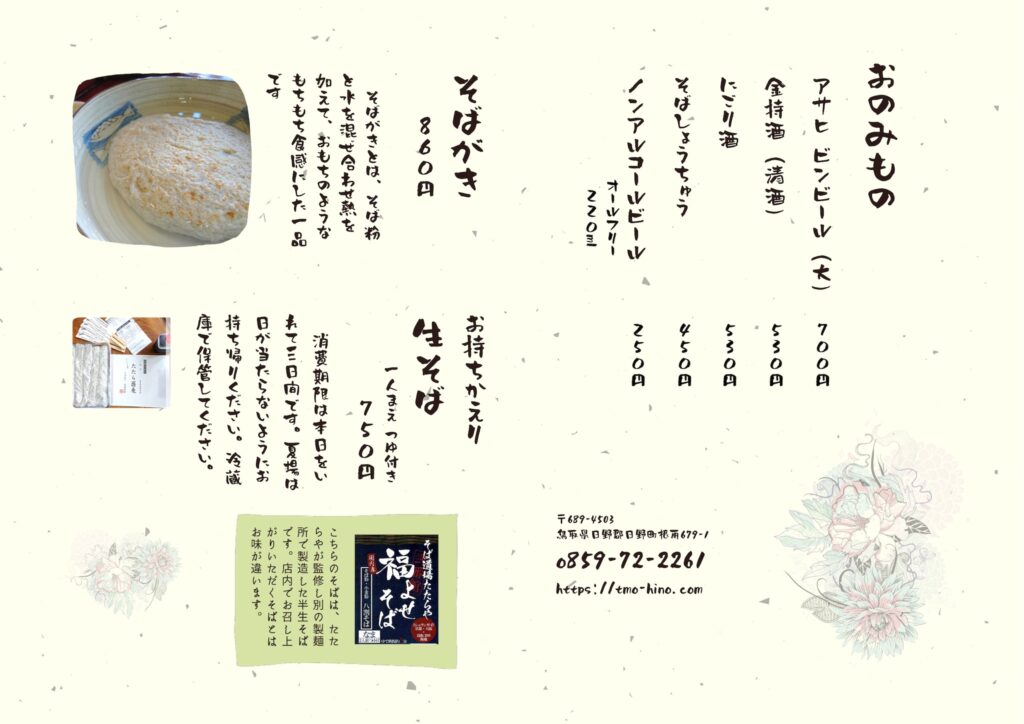 おのみもの
アサヒ ビンビール（大） 700円
金持酒（清酒） 530円
にごり酒 530円
そばしょうちゅう 450円
ノンアルコールビール 250円
オールフリー
220ml
〒689-4503
鳥取県日野郡日野町根雨679-1
0859-72-2261
https://tmo-hino.com
そばがき
860円
そばがきとは、そば粉
と水を混ぜ合わせ熱を
加えて、おもちのような
もちもち食感にした一品
です
お持ちかえり
生そば
一人まえ つゆ付き
750円
消費期限は本日をい
れて三日間です。夏場は
日が当たらないようにお
持ち帰りください。冷蔵
庫で保管してください。
たたら蕎麦
そば道場たたらや
福よせ
そば
八割そば
なま
こちらのそばは、たた
らやが監修し別の製麺
所で製造した半生そば
です。店内でお召し上
がりいただくそばとは
お味が違います。